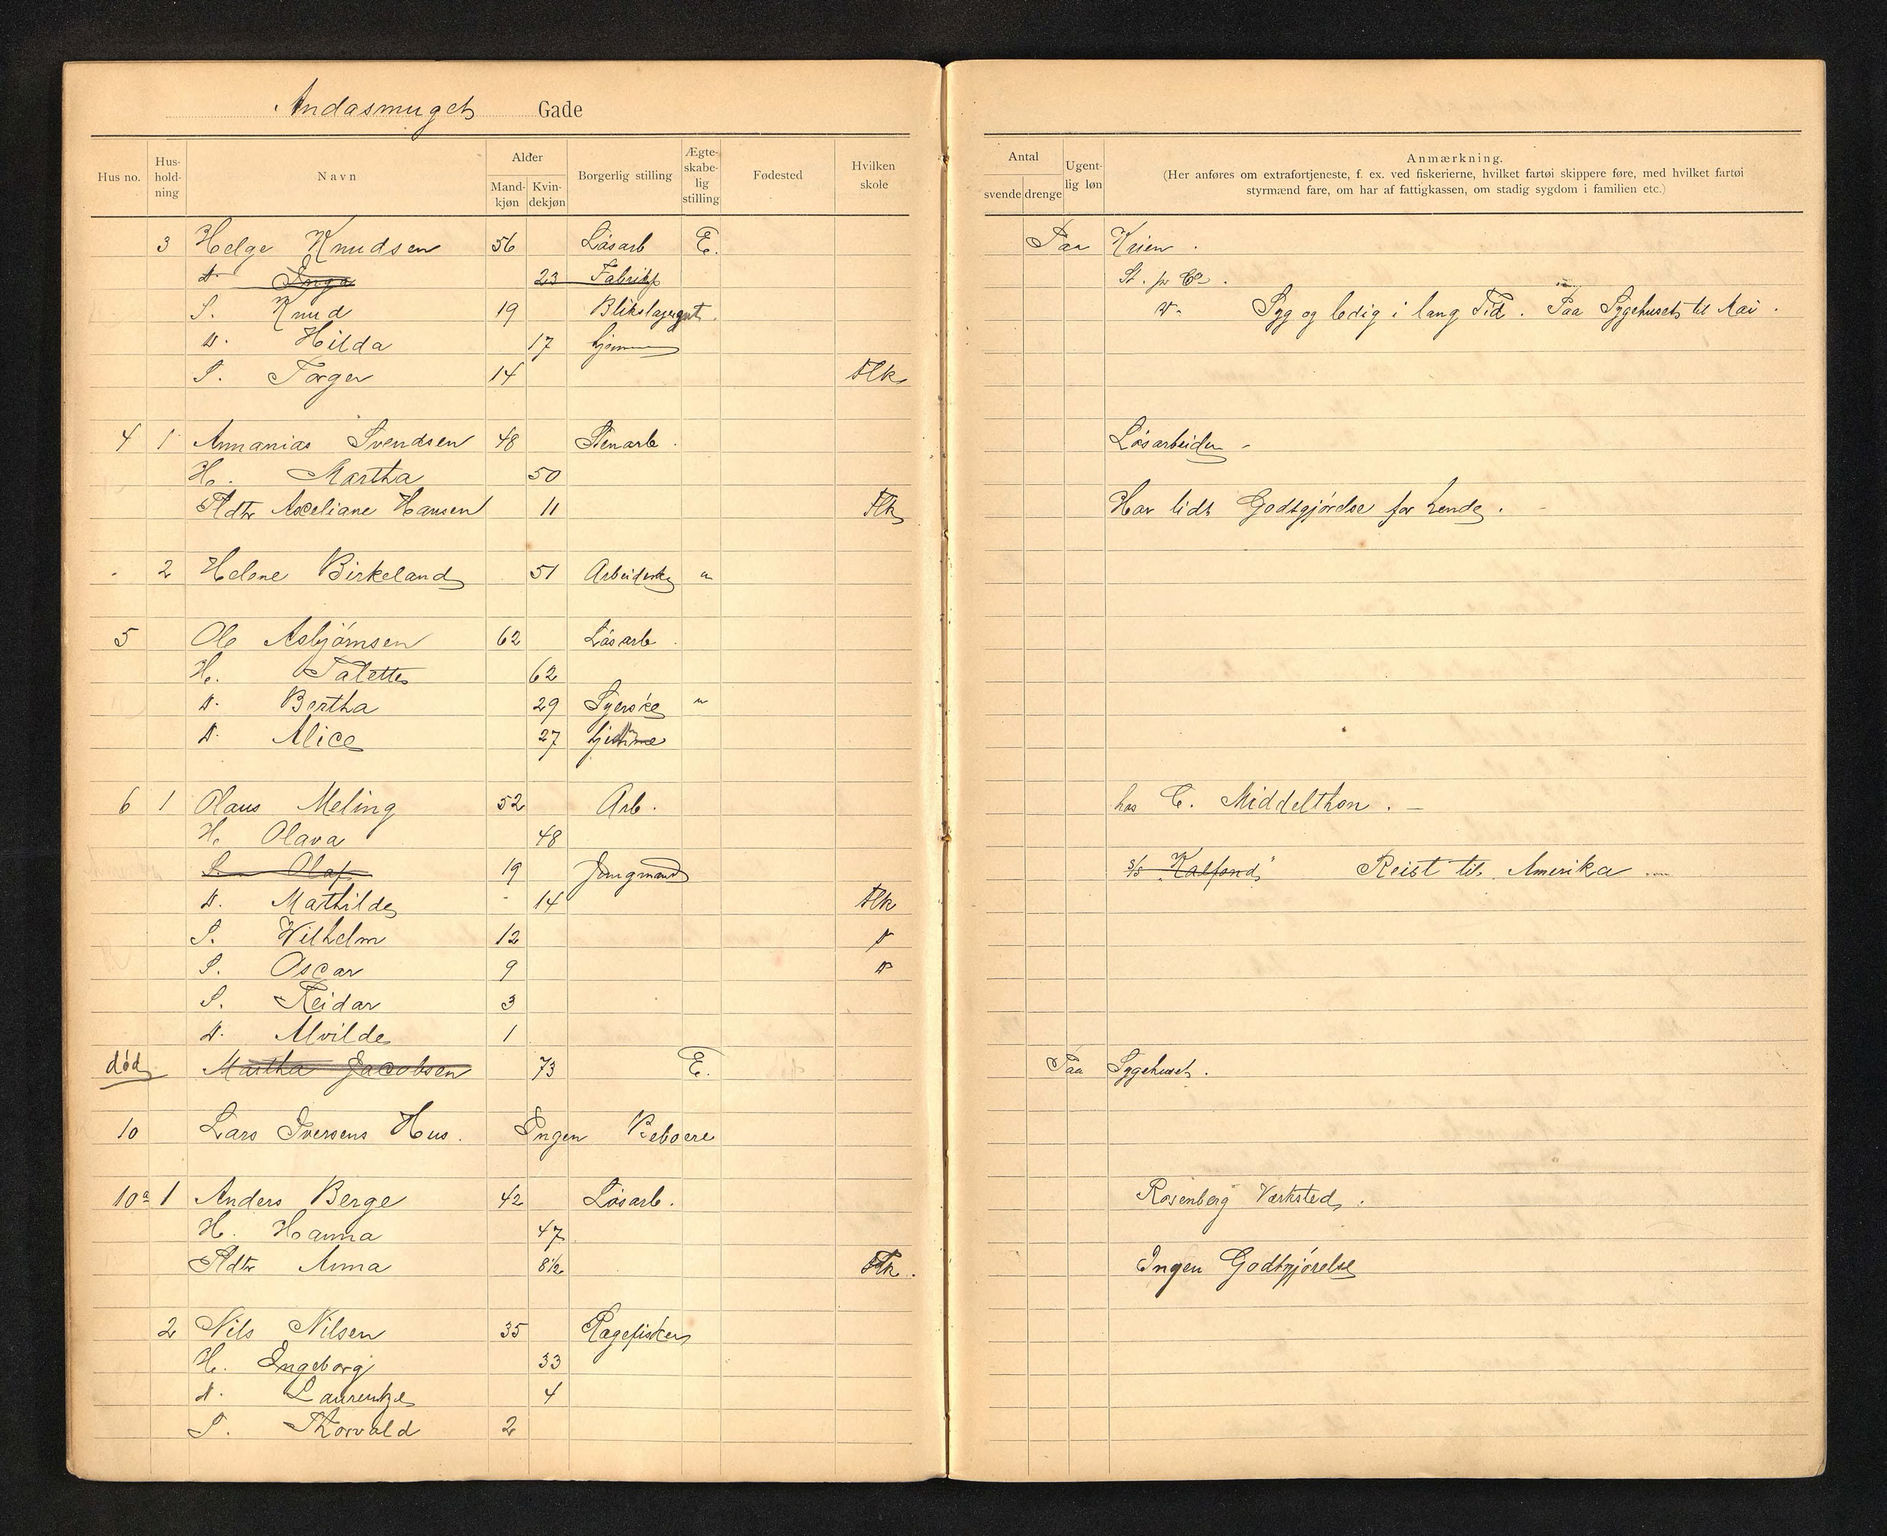 Andasmuget Gade
Hus no. Hus-hold-ning Navn Alder Mand-kjøn Kvin-dekjøn Borgerlig stilling Ægte-skabe-lig stilling Fødested Hvilken skole
Antal svende drenge Ugent-lig løn Anmærkning.
(Her anføres om extrafortjeneste, f. ex. ved fiskerierne, hvilket fartøi skippere føre, med hvilket fartøi
styrmænd fare, om har af fattigkassen, om stadig sygdom i familien etc.)
3 Helge Knudsen 56 Løsarb E. Paa Kaien.
D. Inga 23 Fabrikp St. pr Co.
S. Knud 19 Blikslagergut. Syg og ledig i lang Tid. Paa Sygehuset til
D. Hilda 17 hjemme
S. Torger 14 Flk
4 1 Annanias Svendsen 48 Stenarb. Løsarbeider
H. Martha 50
Pldtr Axeliane Hansen 11 Flk Har lidt Godtgjørelse for hende.
2 Helene Birkeland 51 Arbeiderske u
5 Ole Asbjørnsen 62 Løsarb.
H. Talette 62
D. Bertha 29 Syerske u
D. Alice 27 hjemme
6 1 Olaus Meling 52 Arb. hos C. Middelthon.
H. Olava 48
S. Olaf 19 Jungmand s/s "Kalfond" Reist til Amerika
D. Mathilde 14 Flk
S. Vilhelm 12 "
S. Oscar 9 "
S. Reidar 3
D. Alvilde 1
død Martha Jacobsen 73 E. Paa Sygehuset.
10 Lars Iversens Hus. Ingen Beboere
10a 1 Anders Berge 42 Løsarb. Rosenberg Værksted.
H. Hanna 47
Pldtr Anna 8 1/2 Flk. Ingen Godtgjørelse
2 Nils Nilsen 35 Rægefisker
H. Ingeborg 33
D. Laurentze 4
S. Thorvald 2